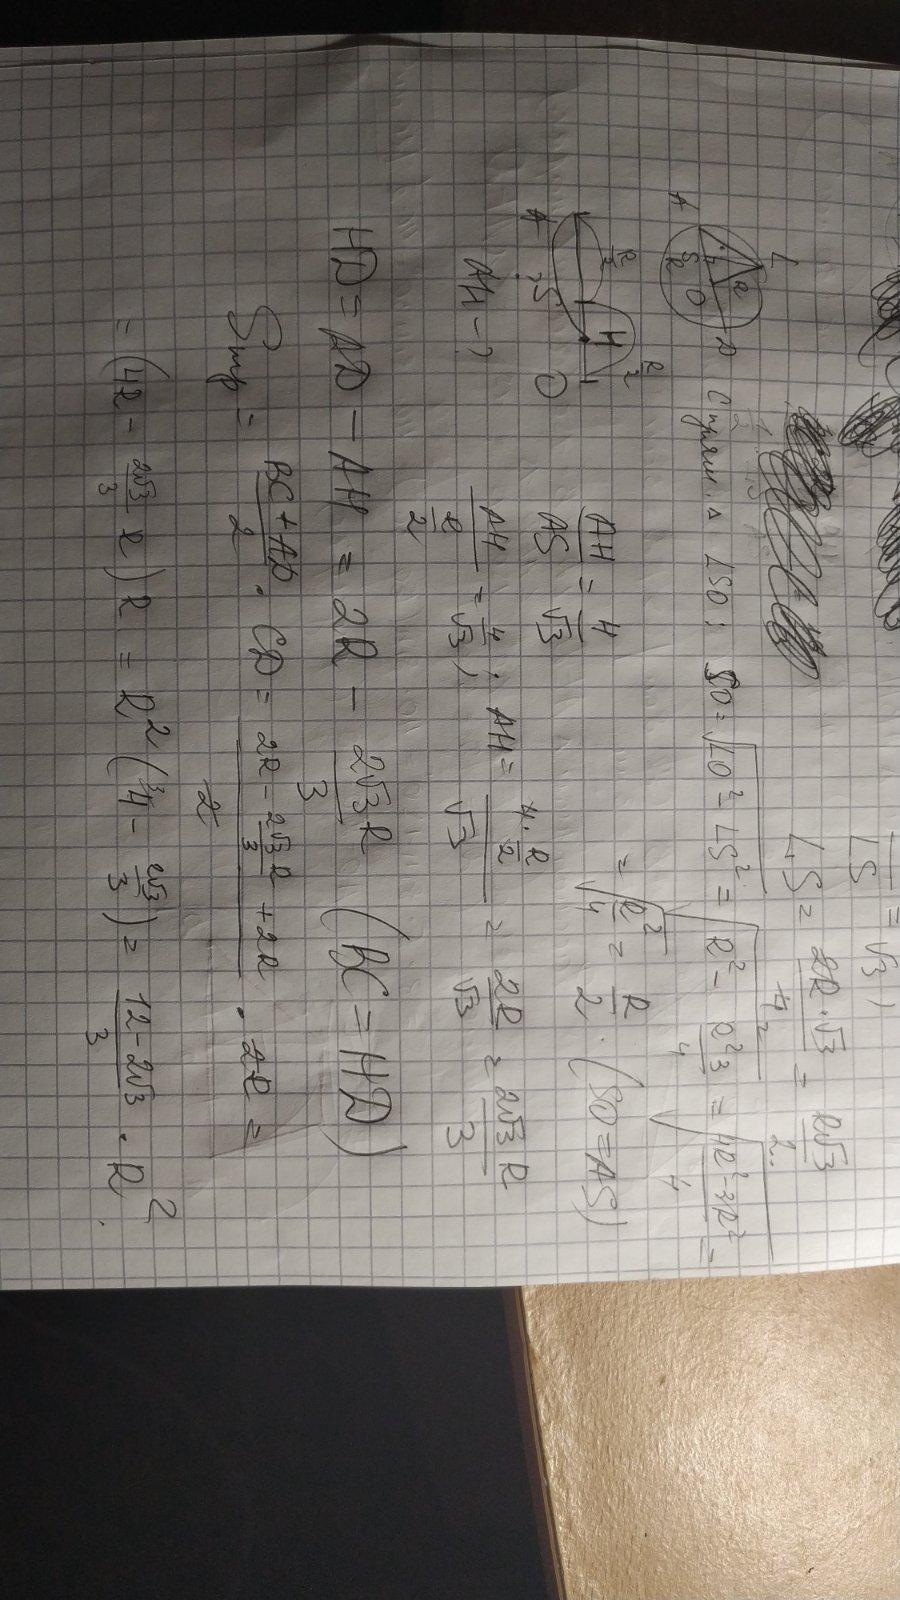 LS = √3 ;
LS = 2R·√3 / 4 2 = R√3 / 2.
L
A S R O D
Δ LSO: SO = √(LO² - LS²) = √(R² - R²3/4) = √((4R² - 3R²)/4) =
= √(R²/4) = R/2. (SO = AS)
R/2 H R/2
A S O
AH/AS = 4/√3
AH - ?
AH / (R/2) = 4/√3 ; AH = (4·R/2)/√3 = 2R/√3 = 2√3 R / 3
HD = AD - AH = 2R - 2√3 R / 3 (BC = HD)
Sтр = (BC + AD)/2 · CD = (2R - 2√3/3 R + 2R)/2 · 2R =
= (4R - 2√3/3 R) R = R² (4 - 2√3/3) = (12 - 2√3)/3 · R².